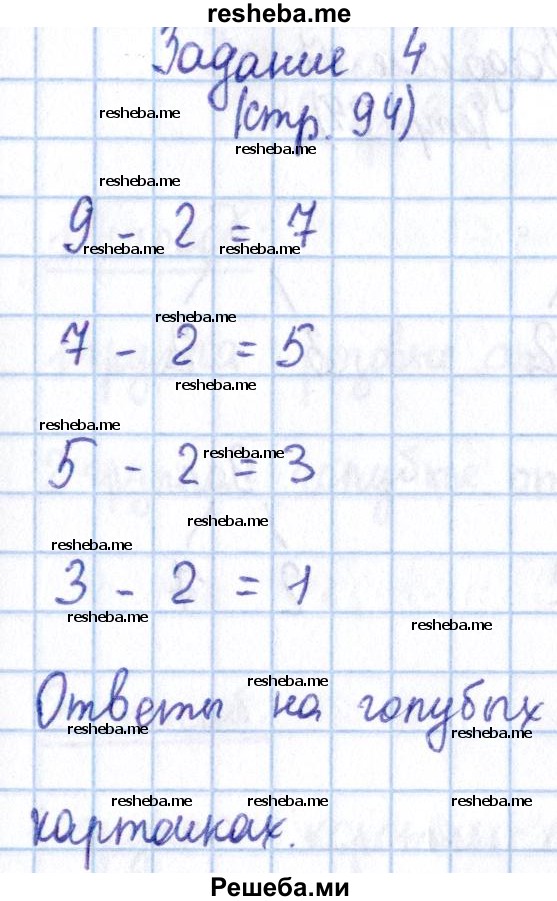 resheba.me
Задание 4
resheba.me
(стр. 94)
resheba.me
resheba.me
9 - 2 = 7
resheba.me resheba.me
resheba.me
7 - 2 = 5
resheba.me
resheba.me
5 - 2 = 3
resheba.me
resheba.me
resheba.me
3 - 2 = 1
resheba.me
resheba.me
resheba.me
Ответы на голубых
resheba.me resheba.me
resheba.me resheba.me resheba.me
карточках.
Решеба.ми